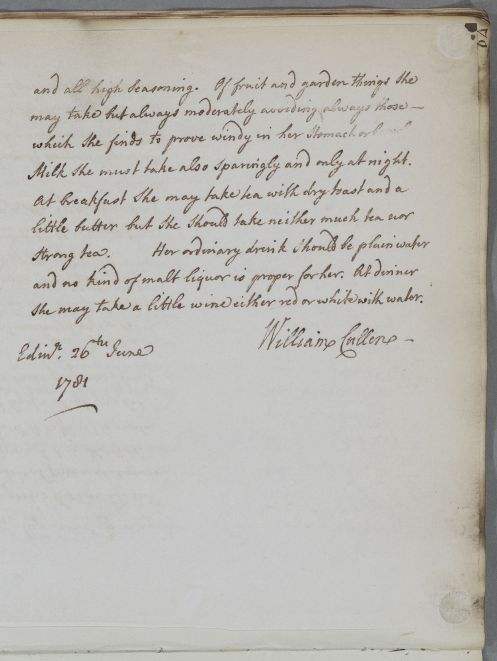 and all high Seasoning. Of fruit and garden things She
may take but always moderately avoiding always those
which She finds to prove windy in her Stomach or
Milk She must take also Sparingly and only at night.
At breakfast She may take tea with dry toast and a
little butter but She Should take neither much tea nor
Strong tea. Her ordinary drink Should be plain water
and no kind of malt liquor is proper for her. At dinner
She may take a little wine either red or white with water.
William Cullen
Edinr. 26th June
1781